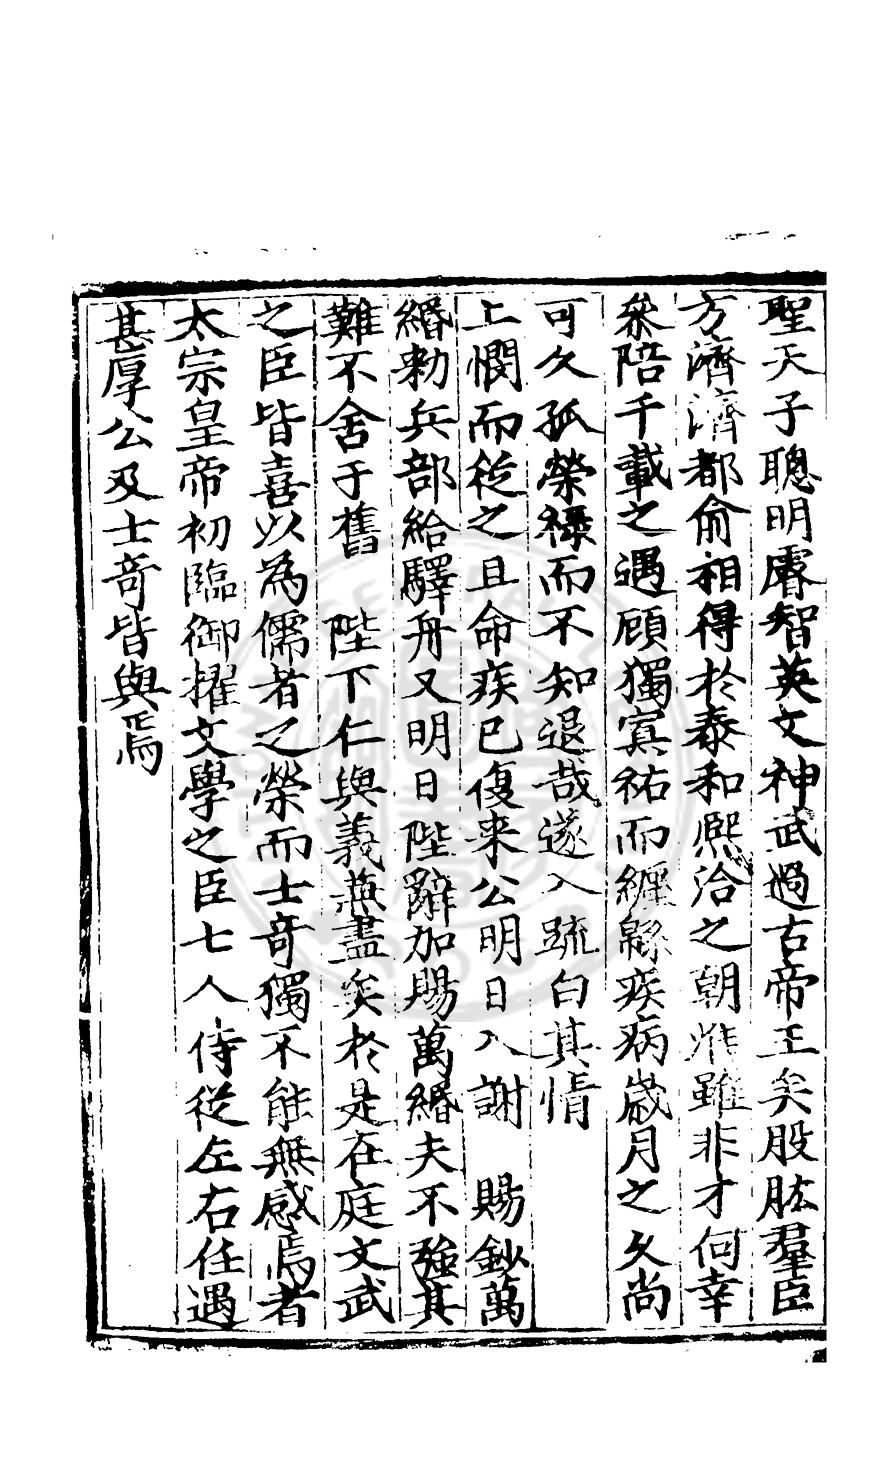 聖天子聰明睿智英文神武過古帝王矣股肱羣臣
方濟濟都俞相得於泰和熈洽之朝淮雖非才何幸
叅陪千載之遇顧獨寘祐而纒緜疾病嵗月之久尚
可久孤榮禄而不知退哉遂入疏白其情
上憫而從之且命疾已復来公明日入謝 賜鈔萬
緡勑兵部給驛舟又明日陛辭加賜萬緡夫不強其
難不舍于舊 陛下仁與義兼盡矣於是在庭文武
之臣皆喜以為儒者之榮而士竒獨不能無感焉者
太宗皇帝初臨御擢文學之臣七人侍從左右任遇
甚厚公及士竒皆與焉